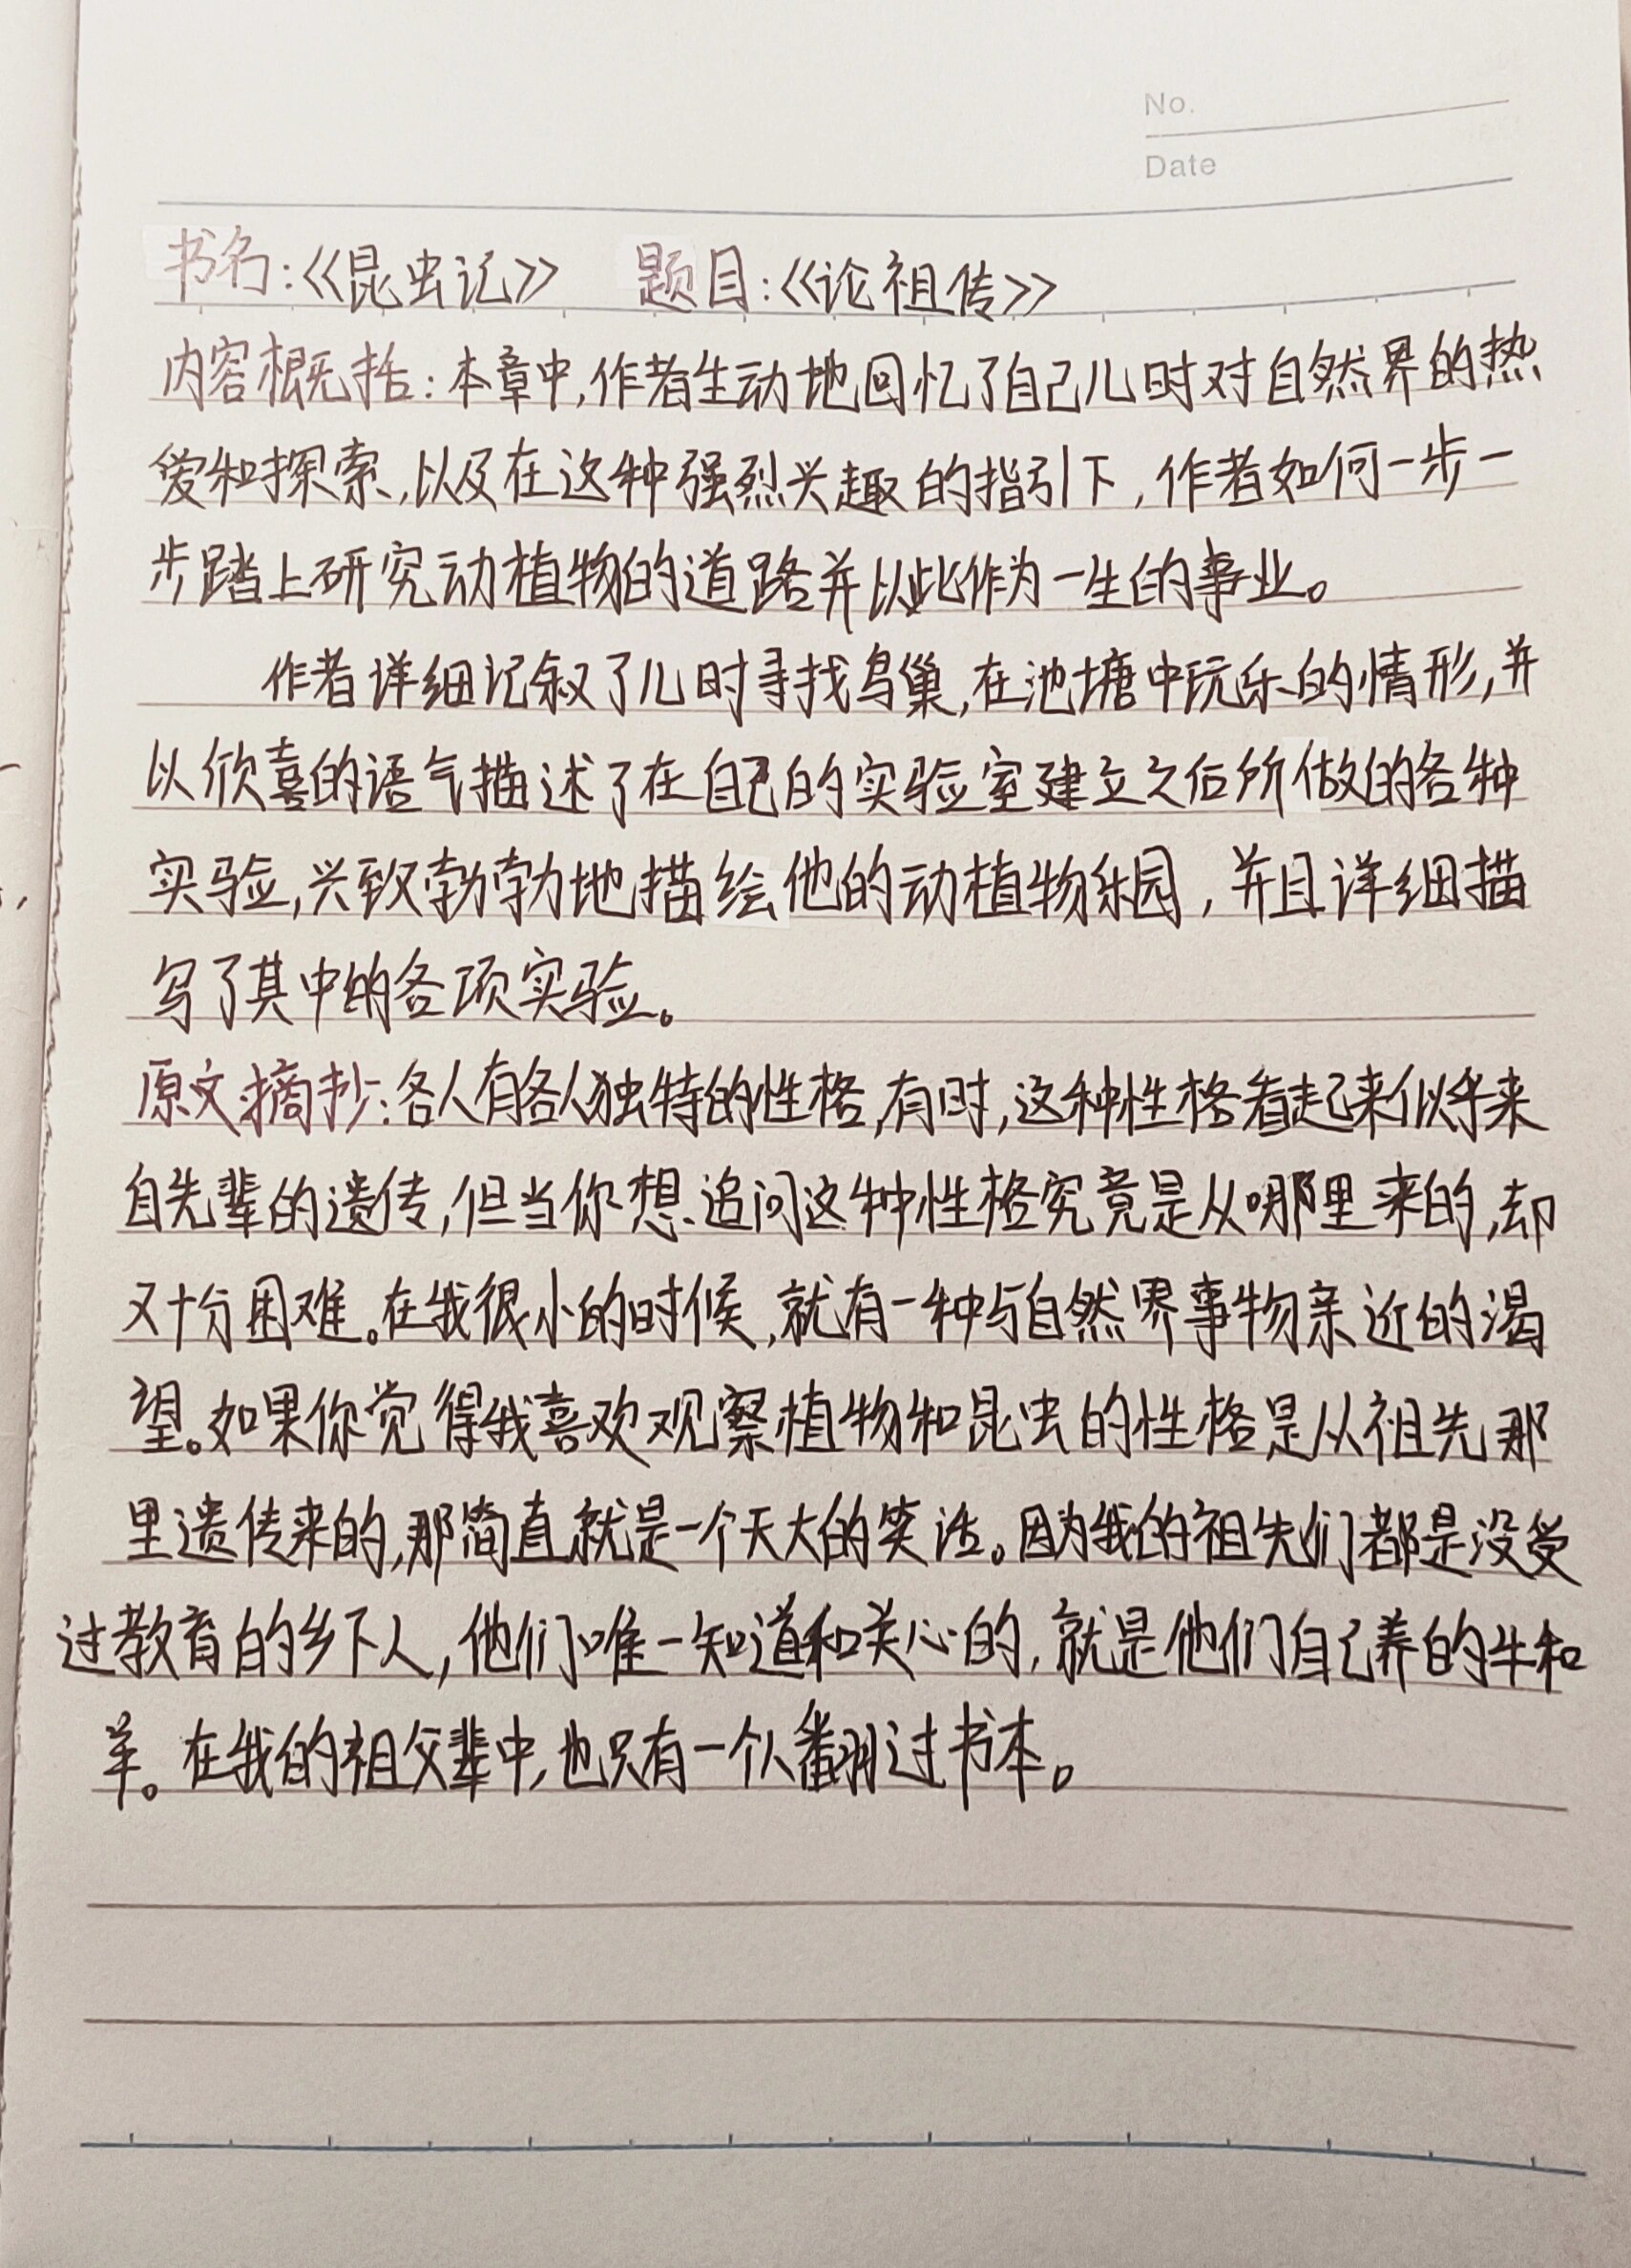 No.
Date
书名:《昆虫记》 题目:《论祖传》
内容概括:本章中,作者生动地回忆了自己儿时对自然界的热
爱和探索,以及在这种强烈兴趣的指引下,作者如何一步一
步踏上研究动植物的道路并以此作为一生的事业。
作者详细记叙了儿时寻找鸟巢,在池塘中玩乐的情形,并
以欣喜的语气描述了在自己的实验室建立之后所做的各种
实验,兴致勃勃地描绘他的动植物乐园,并且详细描
写了其中的各项实验。
原文摘抄:各人有各人独特的性格,有时,这种性格看起来似乎来
自先辈的遗传,但当你想追问这种性格究竟是从哪里来的,却
又十分困难。在我很小的时候,就有一种与自然界事物亲近的渴
望。如果你觉得我喜欢观察植物和昆虫的性格是从祖先那
里遗传来的,那简直就是一个天大的笑话。因为我的祖先们都是没受
过教育的乡下人,他们唯一知道和关心的,就是他们自己养的牛和
羊。在我的祖父辈中,也只有一个人翻过书本。